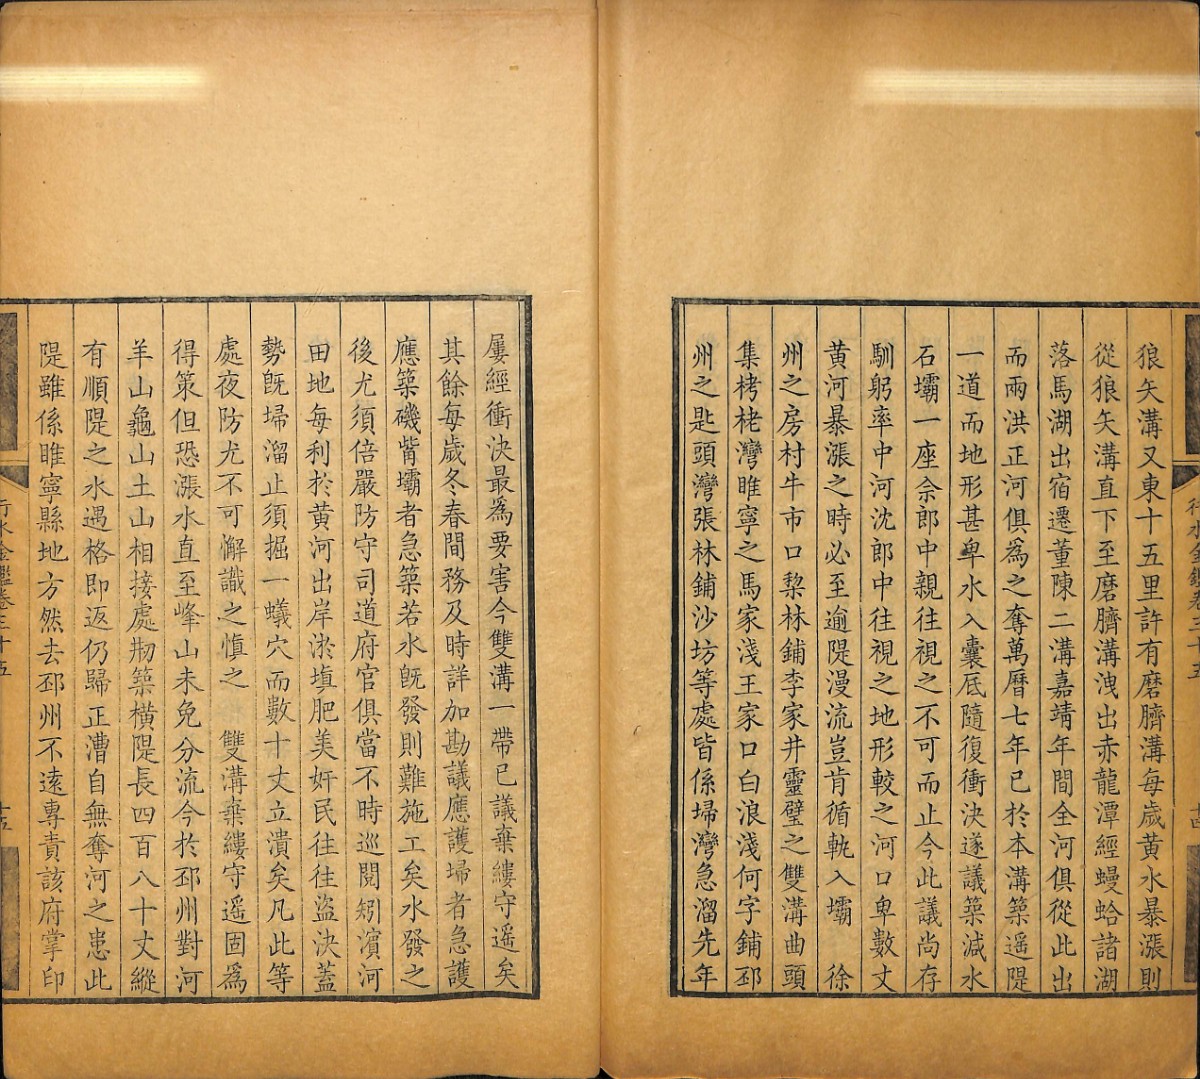 狼矢溝又東十五里許有磨臍溝每歲黃水暴漲則
從狼矢溝直下至磨臍溝洩出赤龍潭經蟃蛤諸湖
落馬湖出宿遷董陳二溝嘉靖年間全河俱從此出
而兩洪正河俱爲之奪萬曆七年已於本溝築遥隄
一道而地形甚卑水入囊底隨復衝決遂議築減水
石壩一座余郎中親往視之不可而止今此議尚存
馴躬率中河沈郎中往視之地形較之河口卑數丈
黃河暴漲之時必至逾隄漫流豈肯循軌入壩　徐
州之房村牛市口棃林鋪李家井靈璧之雙溝曲頭
集栲栳灣睢寧之馬家淺王家口白浪淺何字鋪邳
州之匙頭灣張林鋪沙坊等處皆係埽灣急溜先年
屢經衝決最爲要害今雙溝一帶已議棄縷守遥矣
其餘每歲冬春間務及時詳加勘議應護埽者急護
應築磯觜壩者急築若水旣發則難施工矣水發之
後尤須倍嚴防守司道府官俱當不時巡閱矧濵河
田地每利於黃河出岸淤塡肥美奸民往往盜決蓋
勢旣埽溜止須掘一蟻穴而數十丈立潰矣凡此等
處夜防尤不可懈識之愼之　雙溝棄縷守遥固爲
得策但恐漲水直至峰山未免分流今於邳州對河
羊山龜山土山相接處剏築橫隄長四百八十丈縱
有順隄之水遇格即返仍歸正漕自無奪河之患此
隄雖係睢寧縣地方然去邳州不遠專責該府掌印
行水金鑑卷三十五
十五